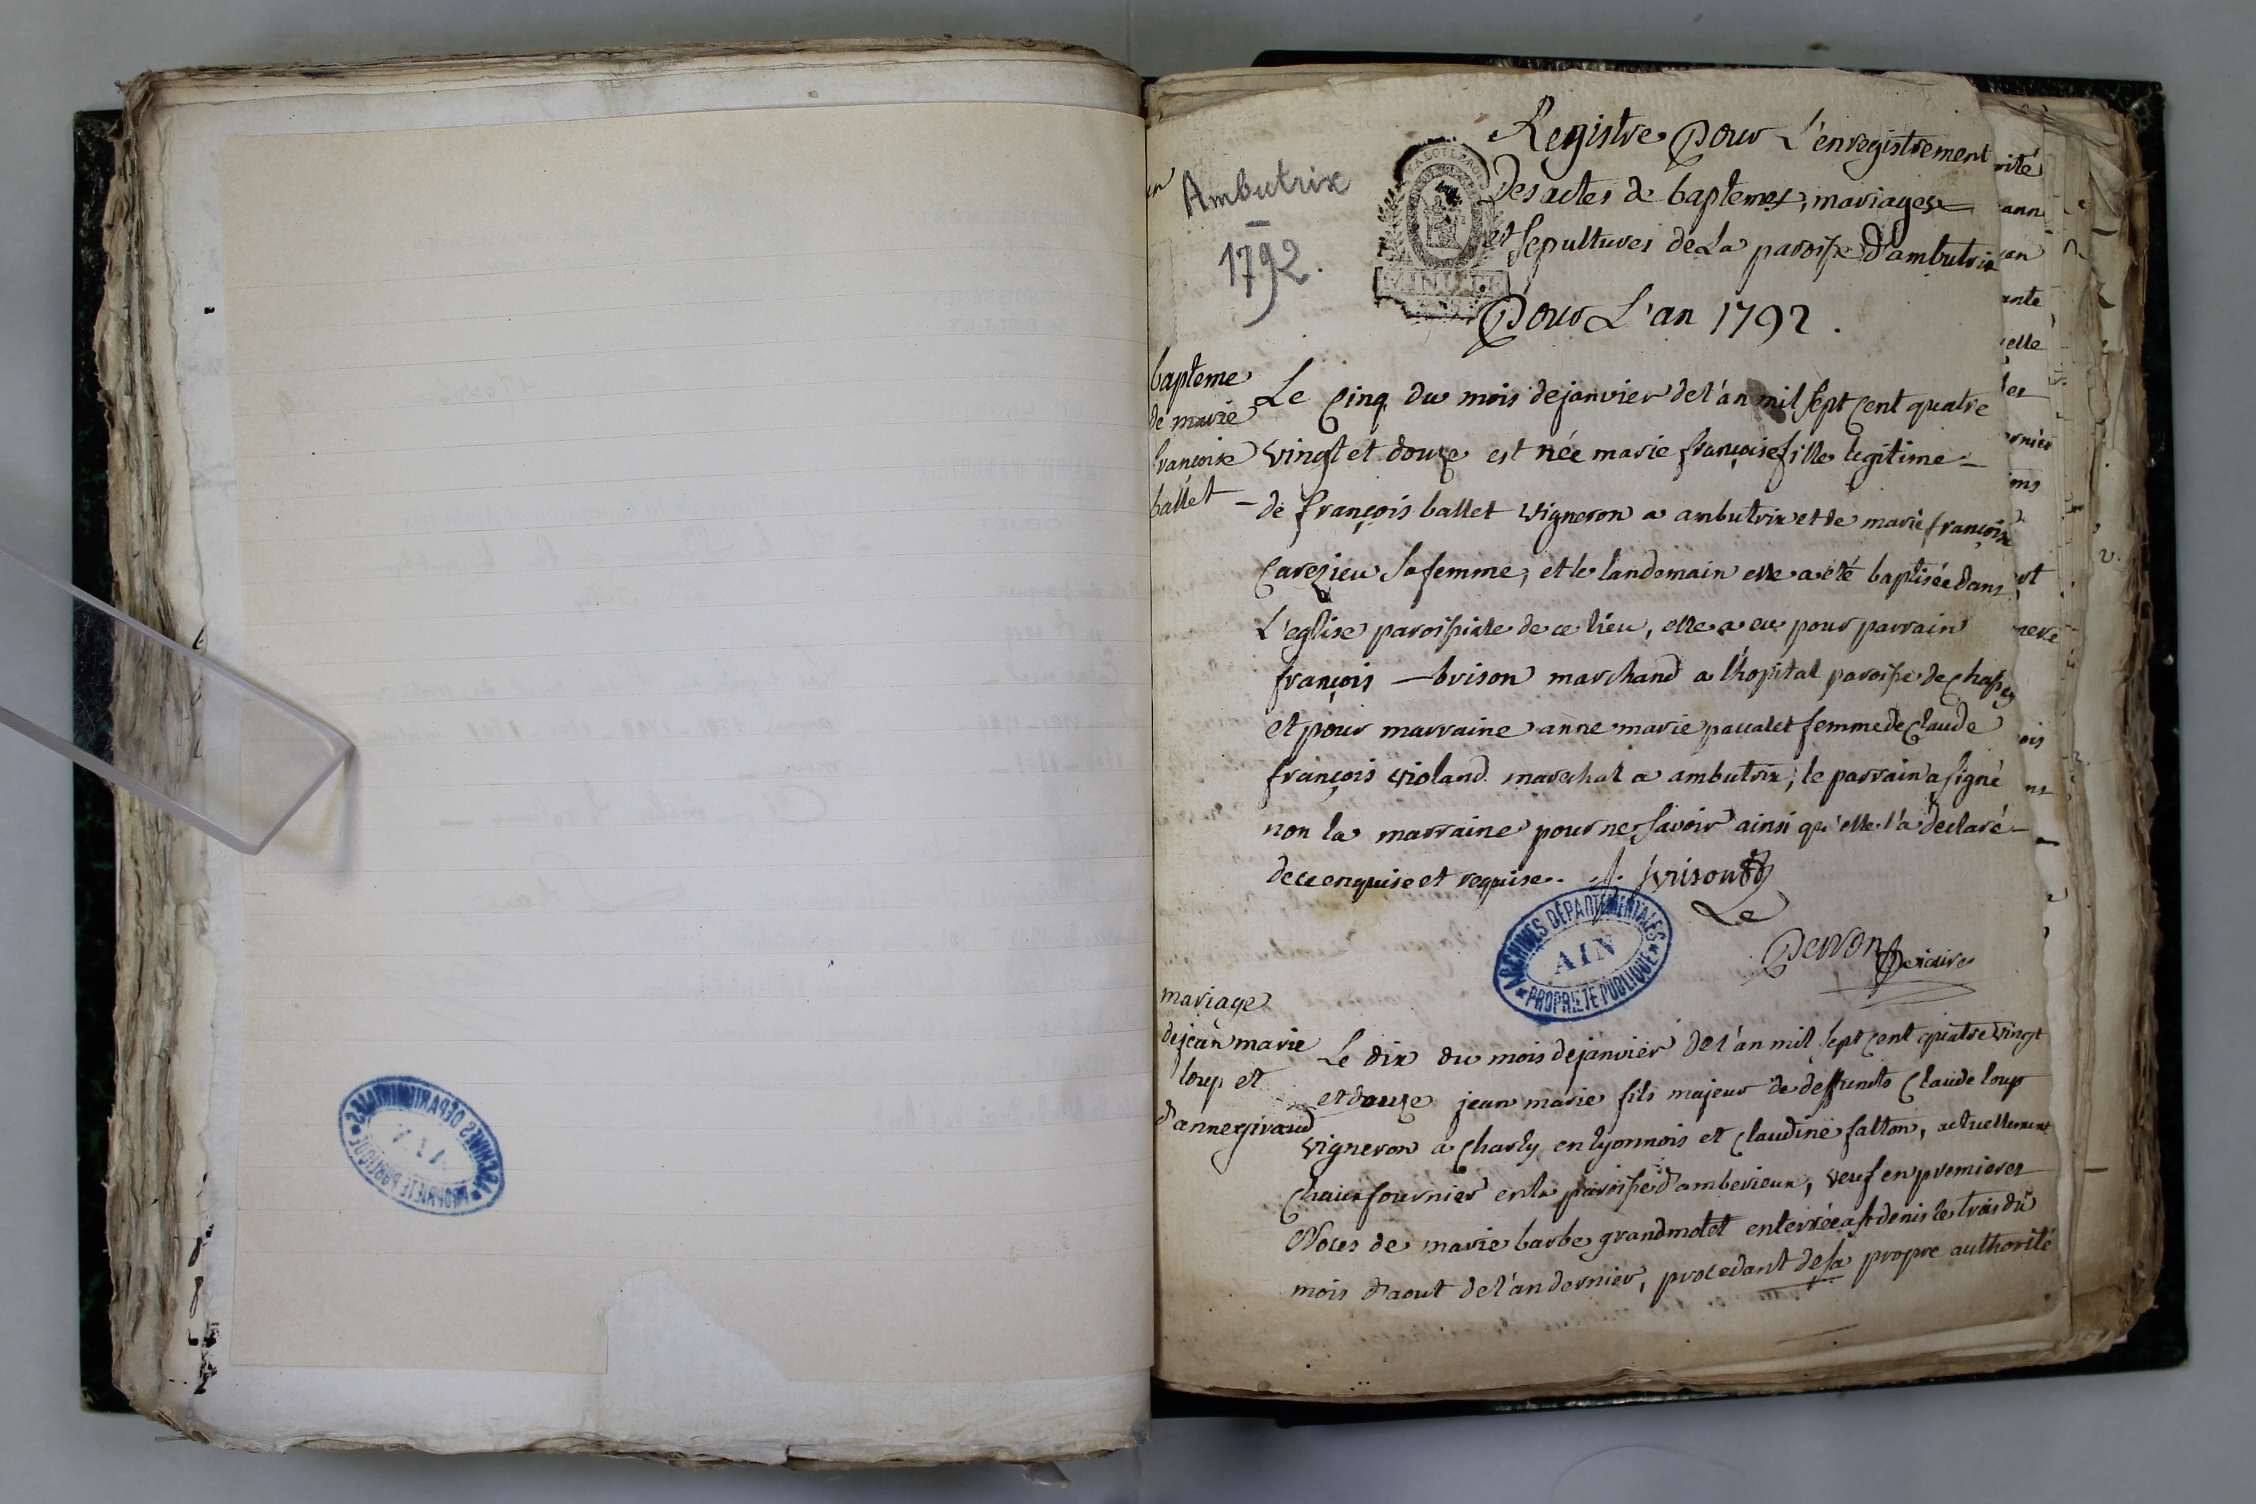 Ambutrix
1792.
Registre pour L'enregistrement
Des actes de baptemes, mariages
et sepultures de La paroisse d'ambutrix
Pour L'an 1792.
bapteme
de marie
françoise
ballet
Le Cinq du mois de janvier de l'an mil sept Cent quatre
vingt et douze est née marie françoise fille legitime
de françois ballet vigneron a ambutrix et de marie françoise
Carezieu sa femme, et le landemain elle a été baptisée dans
L'eglise paroissiale de ce lieu, elle a eu pour parrain
françois brison marchand a l'hopital paroisse de chasey
et pour marraine anne marie paccalet femme de Claude
françois violand marechal a ambutrix, le parrain a signé
non la marraine pour ne savoir ainsi qu'elle l'a declaré
de ce enquise et requise. f. brison
Le
Perron vicaire
ARCHIVES DÉPARTEMENTALES
AIN
PROPRIETE PUBLIQUE
mariage
de jean marie
loup et
d'anne giraud
Le dix du mois de janvier de l'an mil sept Cent quatre vingt
et douze jean marie fils majeur de deffunts Claude loup
vigneron a Charly en lyonnois et Claudine falton, actuellement
Chaufournier en la paroisse d'amberieux, veuf en premieres
Noces de marie barbe grandmotet enterrée a st denis le trois du
mois d'aout de l'an dernier, procedant de sa propre authorité